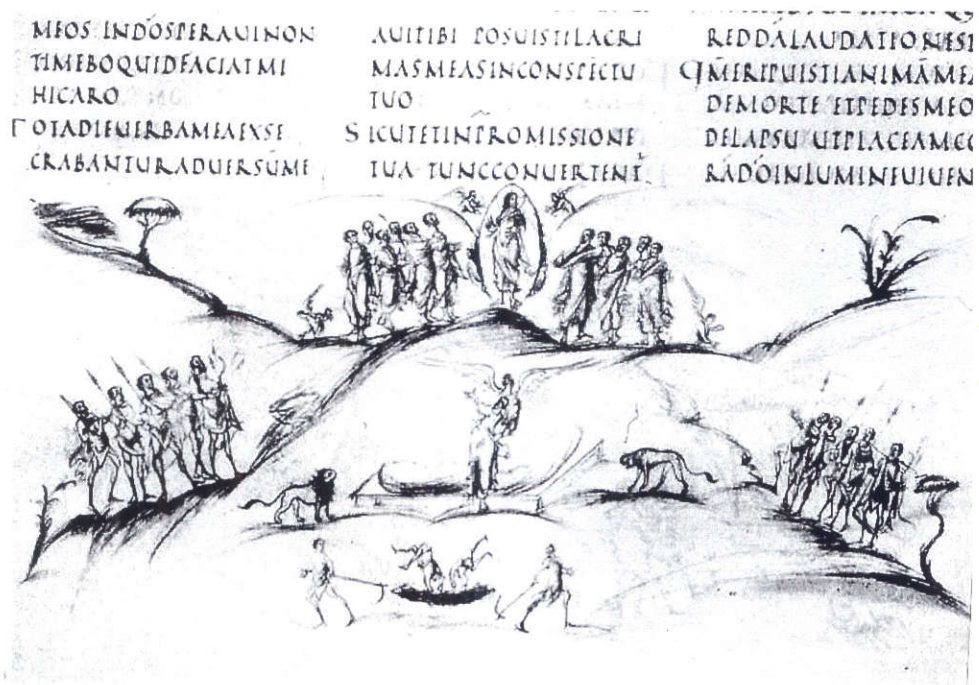 MEOS INDOSPERAUINON
TIMEBOQUIDFACIATMI
HICARO
TOTADIEUERBAMEAEXSE
CRABANTURADUERSUME
AUITIBI POSUISTILACRI
MASMEASINCONSPECTU
TUO
SICUTETINPROMISSIONE
TUA TUNCCONUERTENT
REDDALAUDATIONES
QMERIPUISTIANIMAMEA
DEMORTE ETPEDESMEO
DELAPSU UTPLACEAMCO
RADOINLUMINEUIUEN